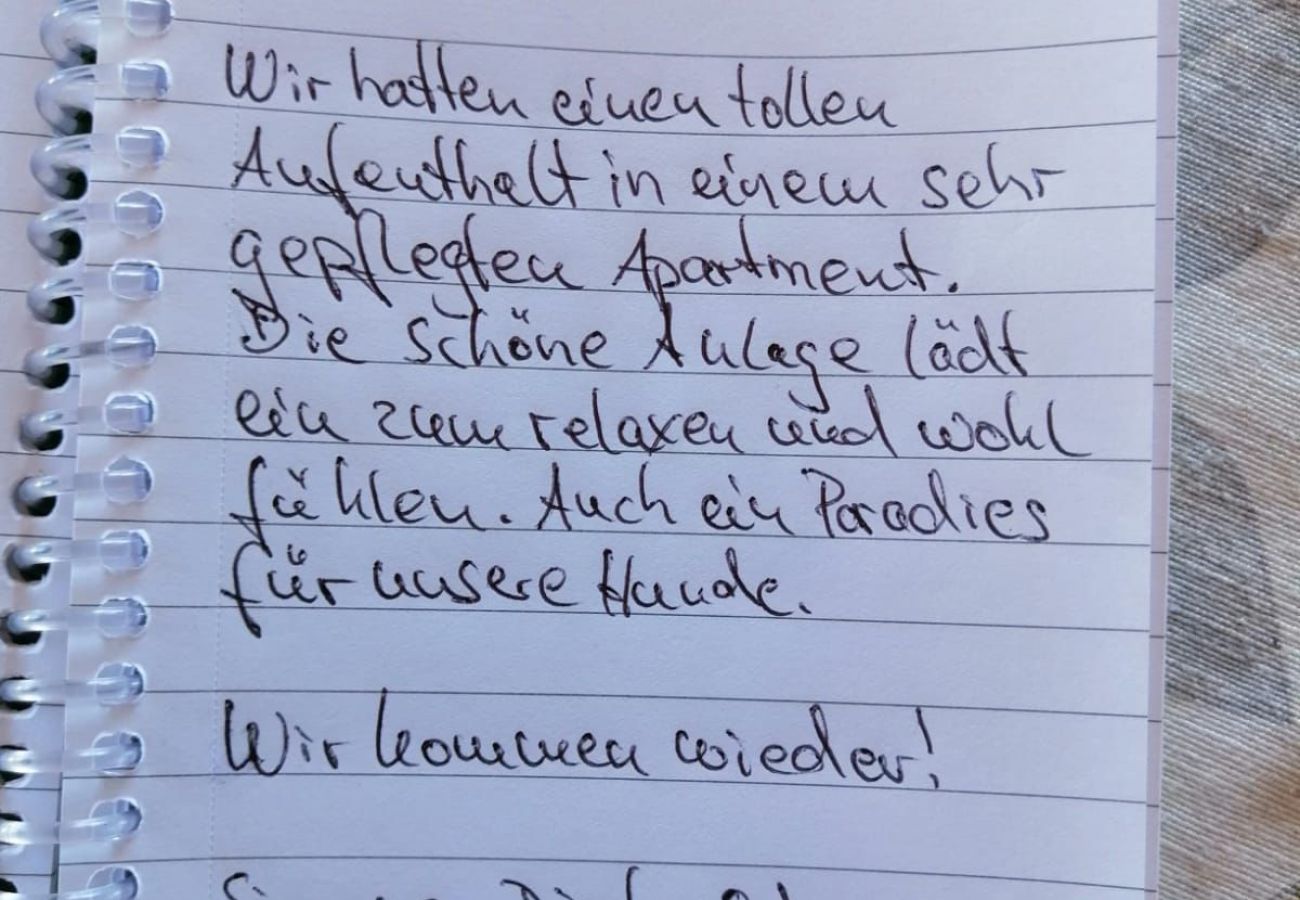 Wir hatten einen tollen
Aufenthalt in einem sehr
gepflegten Apartment.
Die schöne Anlage lädt
ein zum relaxen und wohl
fühlen. Auch ein Paradies
für unsere Hunde.
Wir kommen wieder!